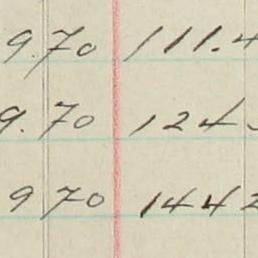 9.70 111.4
9.70 124
9 70 1442